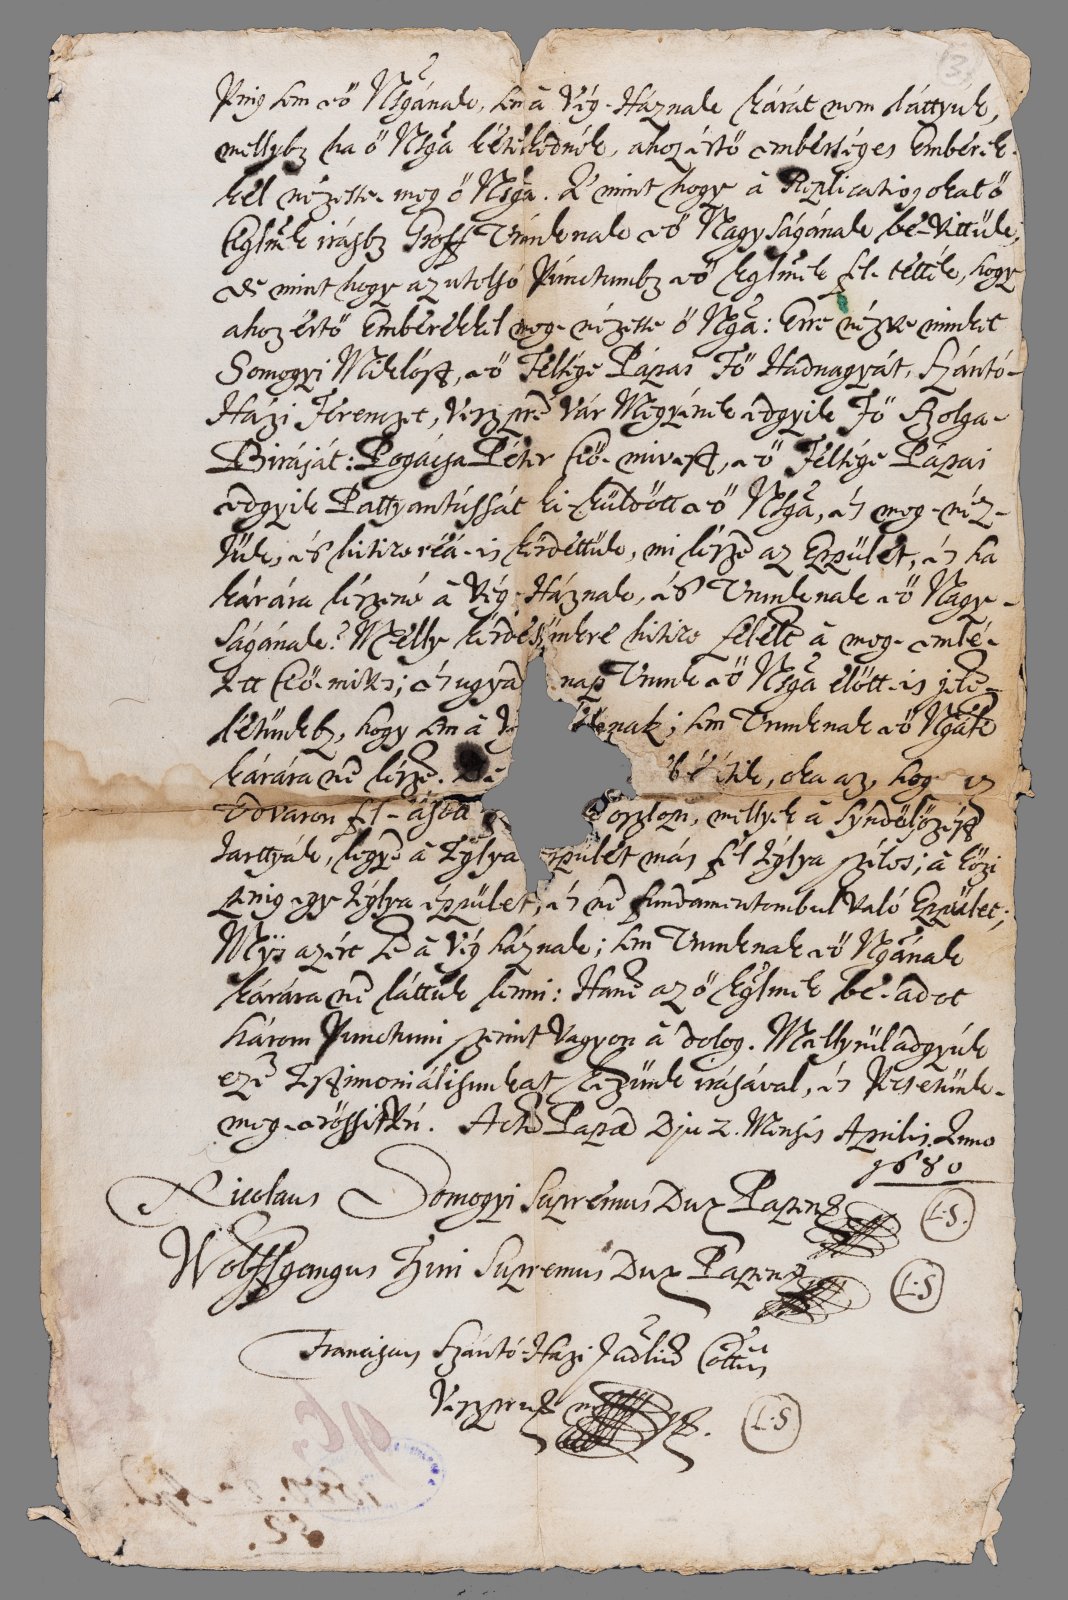 (3)
Penig sem eő Nsgának, sem â Vég-Háznak kárát nem láttyuk,
mellybz ha ő Nsga kételkednék, ahoz értő emberséges Emberek-
kel nézette-meg ő Nsga. S' mint hogy â Replicatiojokat ő
Kglmek irásbz Groff Urunknak eő Nagyságának bé-vittük,
de mint hogy az utolsó Punctumbz eő kglmek fel-tették, hogy
ahoz értő Emberekkel meg-nézette ő Nga: Erre nézve minket
Somogyi Miklóst, eő Felsége Pápai Fő Hadnagyát, Szántó-
Házi Ferenczet, Veszprē Vár Megyének edgyik Fő Szolga-
Biráját: Pogácsa Péter Kő-mivest, eő Felsége Pápai
edgyik Pattyantússát ki-küldött eő Nsga, és meg-néz-
tük, és hitire reá-is kérdettük, mi lészē az Eppület, és ha
kárára lészene â Vég-Háznak, és Urunknak eő Nagy-
ságának? Melly kérdésünkre hitire felelt â meg-emlé-
tett Kő-mives; és ugyan nap Urunk eő Nsga előtt-is jelē-
létünkbz, hogy sem â nak; sem Urunknak eő Ngának
kárára nē lészē. oka az, hogy az
Udvaron fel-ásott oszlop, mellyek â Syndelyözést
tarttyák, legyē â Téglya eppület más fél téglya széles; â közi
penig egy téglya éppület, és nē fundamentombul való Eppület;
Mÿs azért se â Vég háznak; sem Urunknak eő Ngának
kárára nē láttuk lenni: Hanē az ő kglmek bé-adot
három Punctumi szerint vagyon â dolog. Mellyrül adgyuk
ezē Testimoniálisunkat kezünk irásával, és Pecsetünk-
meg-erőssitvén. Actū Papæ Die 2. Mensis Aprilis. Anno
1680
Nicolaus Somogyi Supremus Dux Papens
L.S.
Wolffgangus Supremus Dux Papens
L.S
Franciscus Szántó-Házi Judliū Cottus
Veszpre
L.S